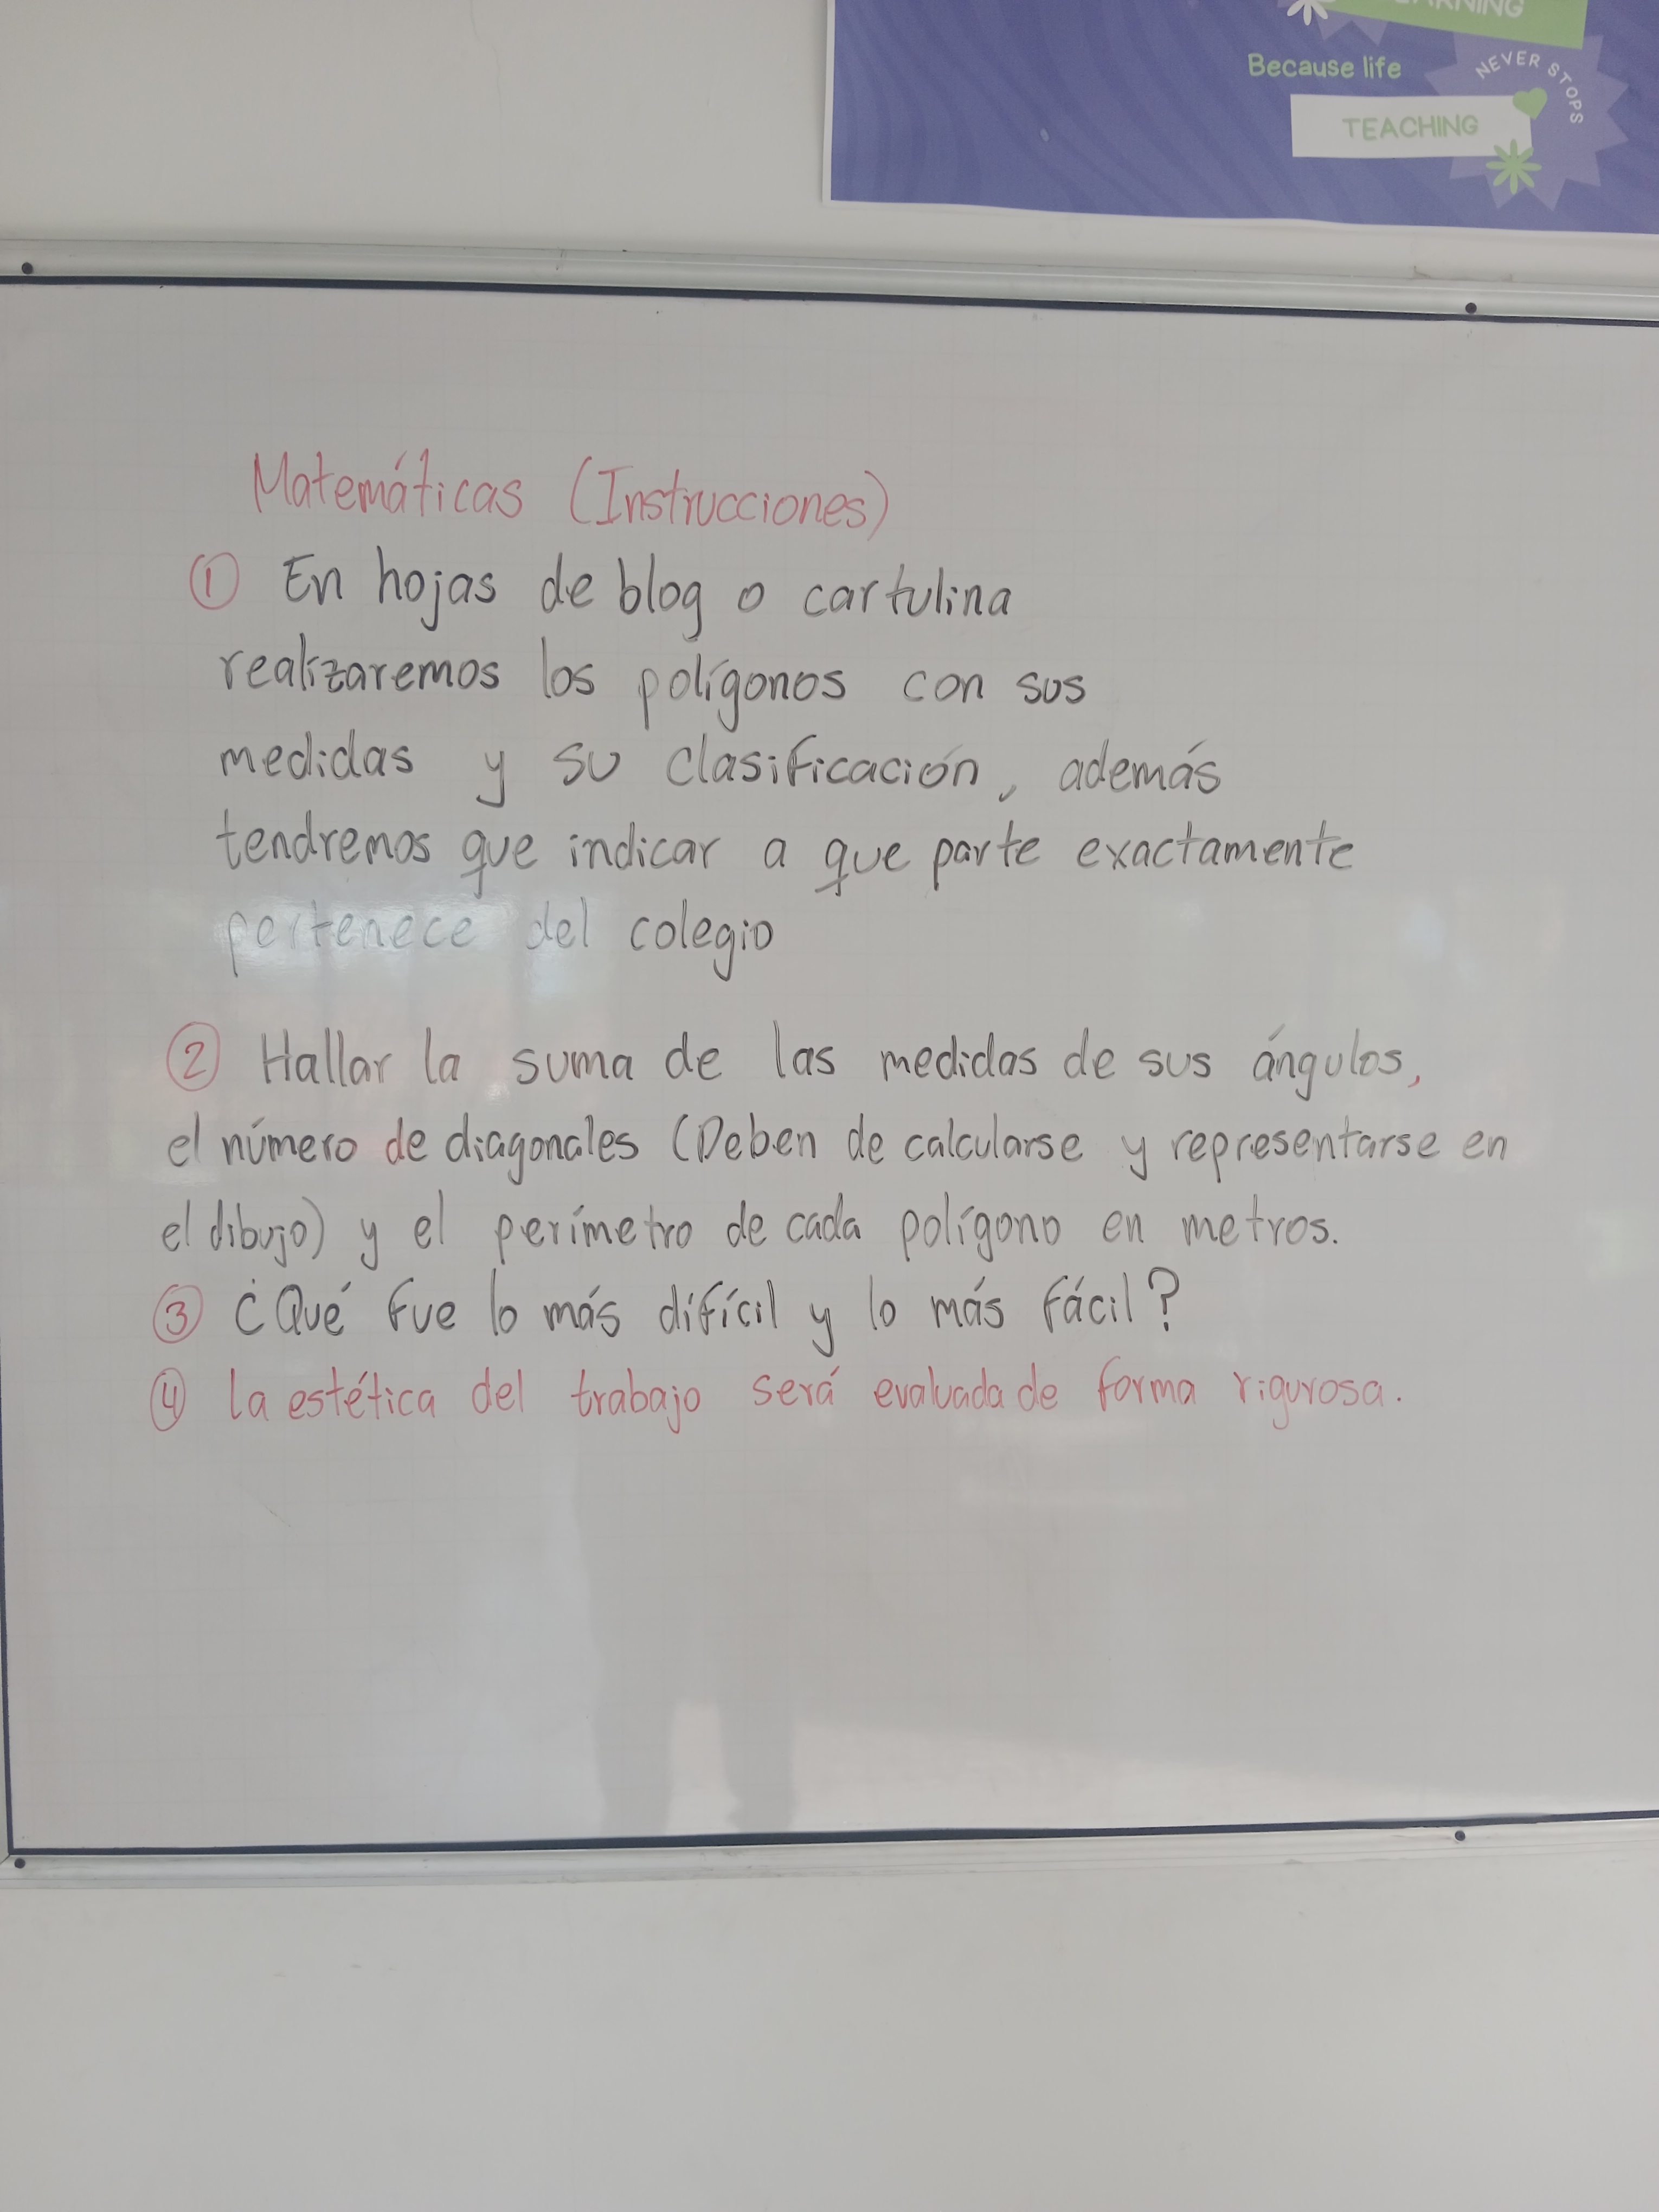 ARNING
Because life
NEVER STOPS
TEACHING
Matemáticas (Instrucciones)
① En hojas de blog o cartulina
realizaremos los polígonos con sus
medidas y su clasificación, además
tendremos que indicar a que parte exactamente
pertenece del colegio
② Hallar la suma de las medidas de sus ángulos,
el número de diagonales (Deben de calcularse y representarse en
el dibujo) y el perímetro de cada polígono en metros.
③ ¿Qué fue lo más difícil y lo más fácil?
④ La estética del trabajo será evaluada de forma rigurosa.